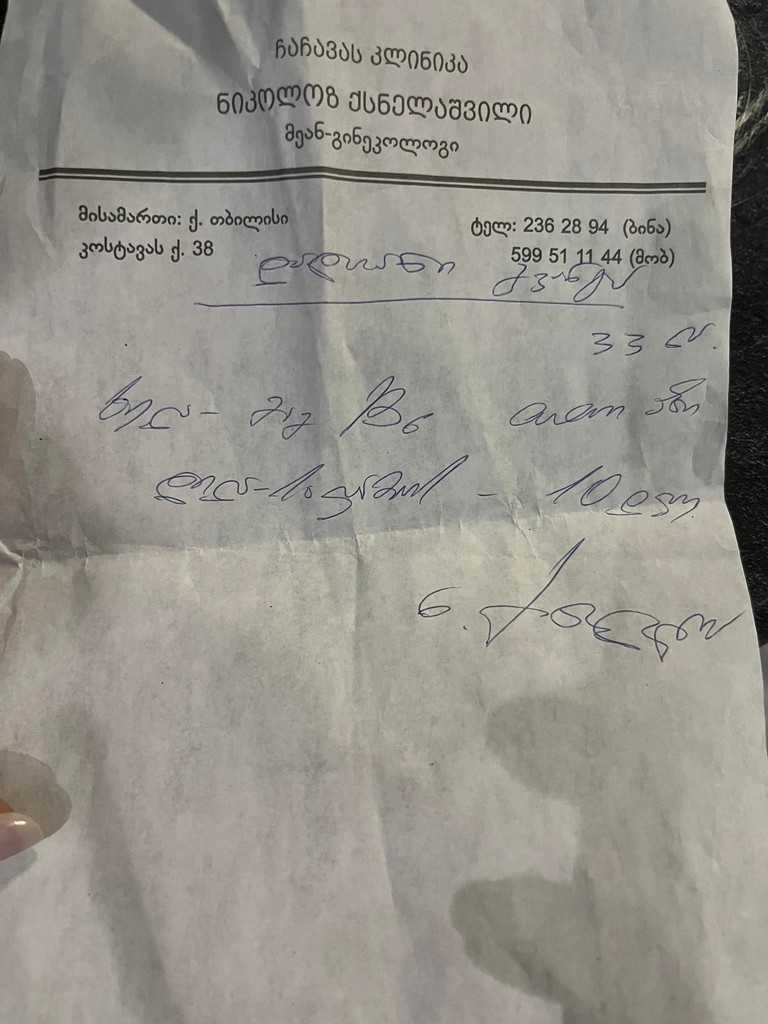 ჩაჩავას კლინიკა
ნიკოლოზ ქსნელაშვილი
მეან-გინეკოლოგი
მისამართი: ქ. თბილისი
კოსტავას ქ. 38
ტელ: 236 28 94 (ბინა)
599 51 11 44 (მობ)
დადიანი
33 წ.
B6
დილა-საღამოს - 10 დღე
ნ.